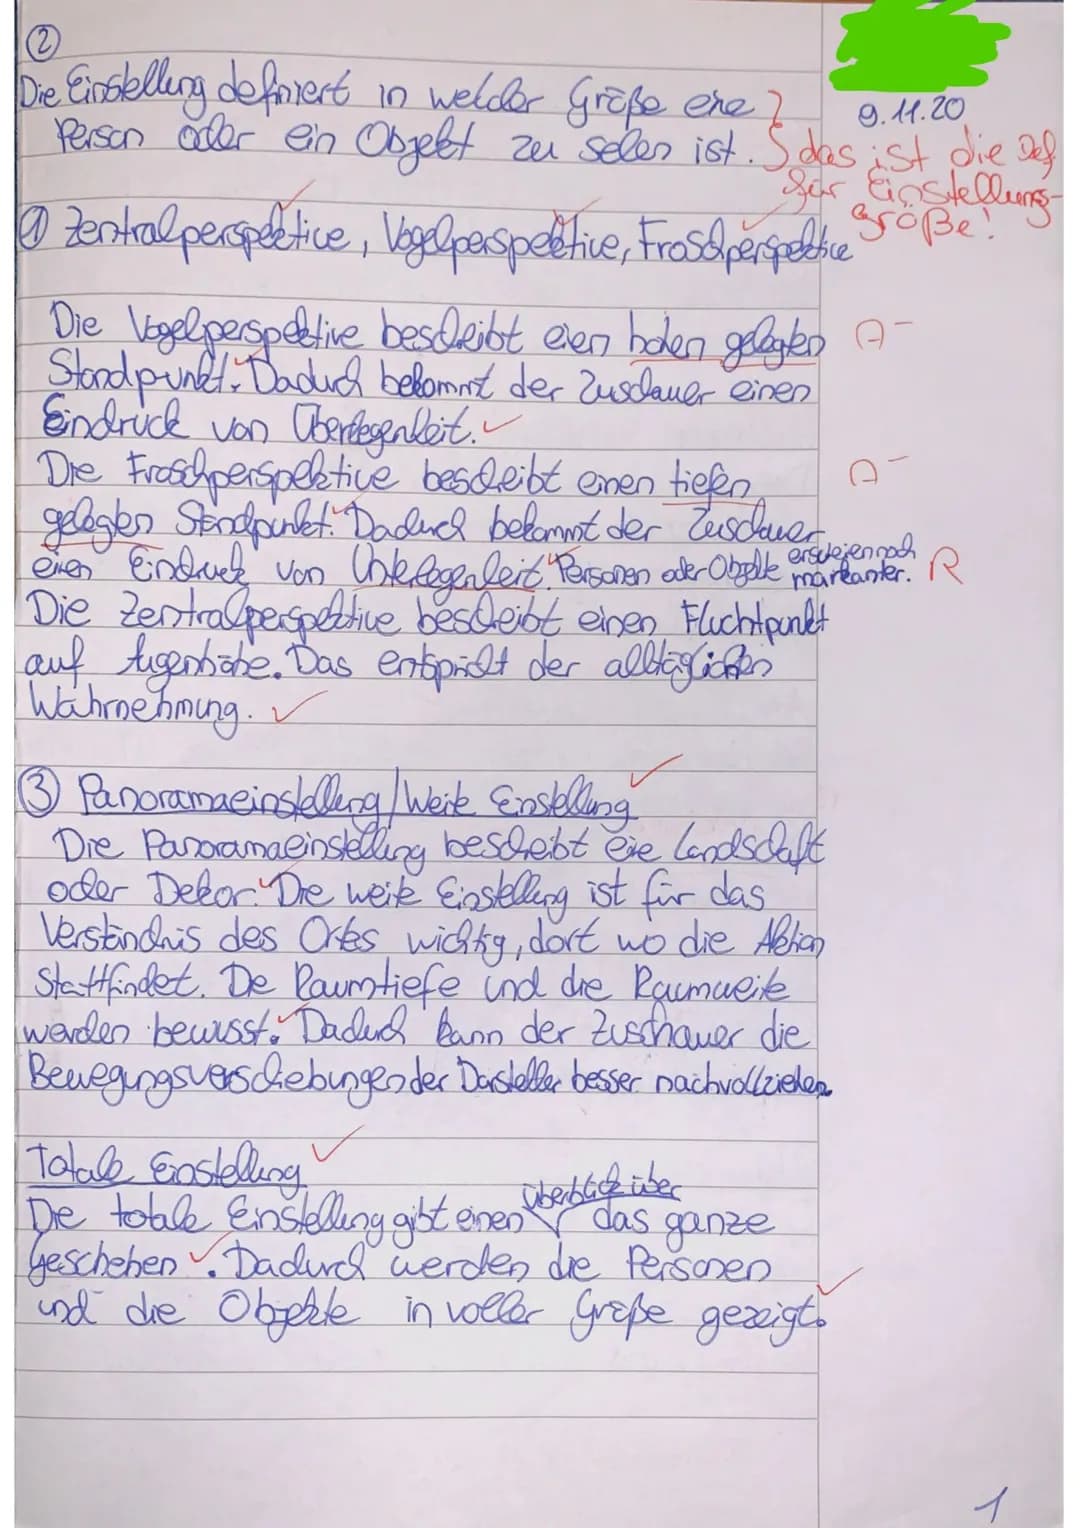 ②
9.11.20
Die Einstellung definiert in welcher Größe eine
Person oder ein Objekt zu sehen ist.
das ist die Def.
für Einstellungs-
größe!
① Zentralperspektive, Vogelperspektive, Froschperspektive
Die Vogelperspektive beschreibt einen hohen gelegten A-
Standpunkt. Dadurch bekommt der Zuschauer einen
Eindruck von Überlegenheit.
Die Froschperspektive beschreibt einen tiefen A-
gelegten Standpunkt. Dadurch bekommt der Zuschauer
einen Eindruck von Unterlegenheit. Personen oder Objekte erscheinen noch markanter. R
Die Zentralperspektive beschreibt einen Fluchtpunkt
auf Augenhöhe. Das entspricht der alltäglichen
Wahrnehmung.
③ Panoramaeinstellung/Weite Einstellung
Die Panoramaeinstellung beschreibt eine Landschaft
oder Dekor. Die weite Einstellung ist für das
Verständnis des Ortes wichtig, dort wo die Aktion
stattfindet. Die Raumtiefe und die Raumweite
werden bewusst. Dadurch kann der Zuschauer die
Bewegungsverschiebungen der Darsteller besser nachvollziehen.
Totale Einstellung
Die totale Einstellung gibt einen Überblick über das ganze
Geschehen. Dadurch werden die Personen
und die Objekte in voller Größe gezeigt.
1